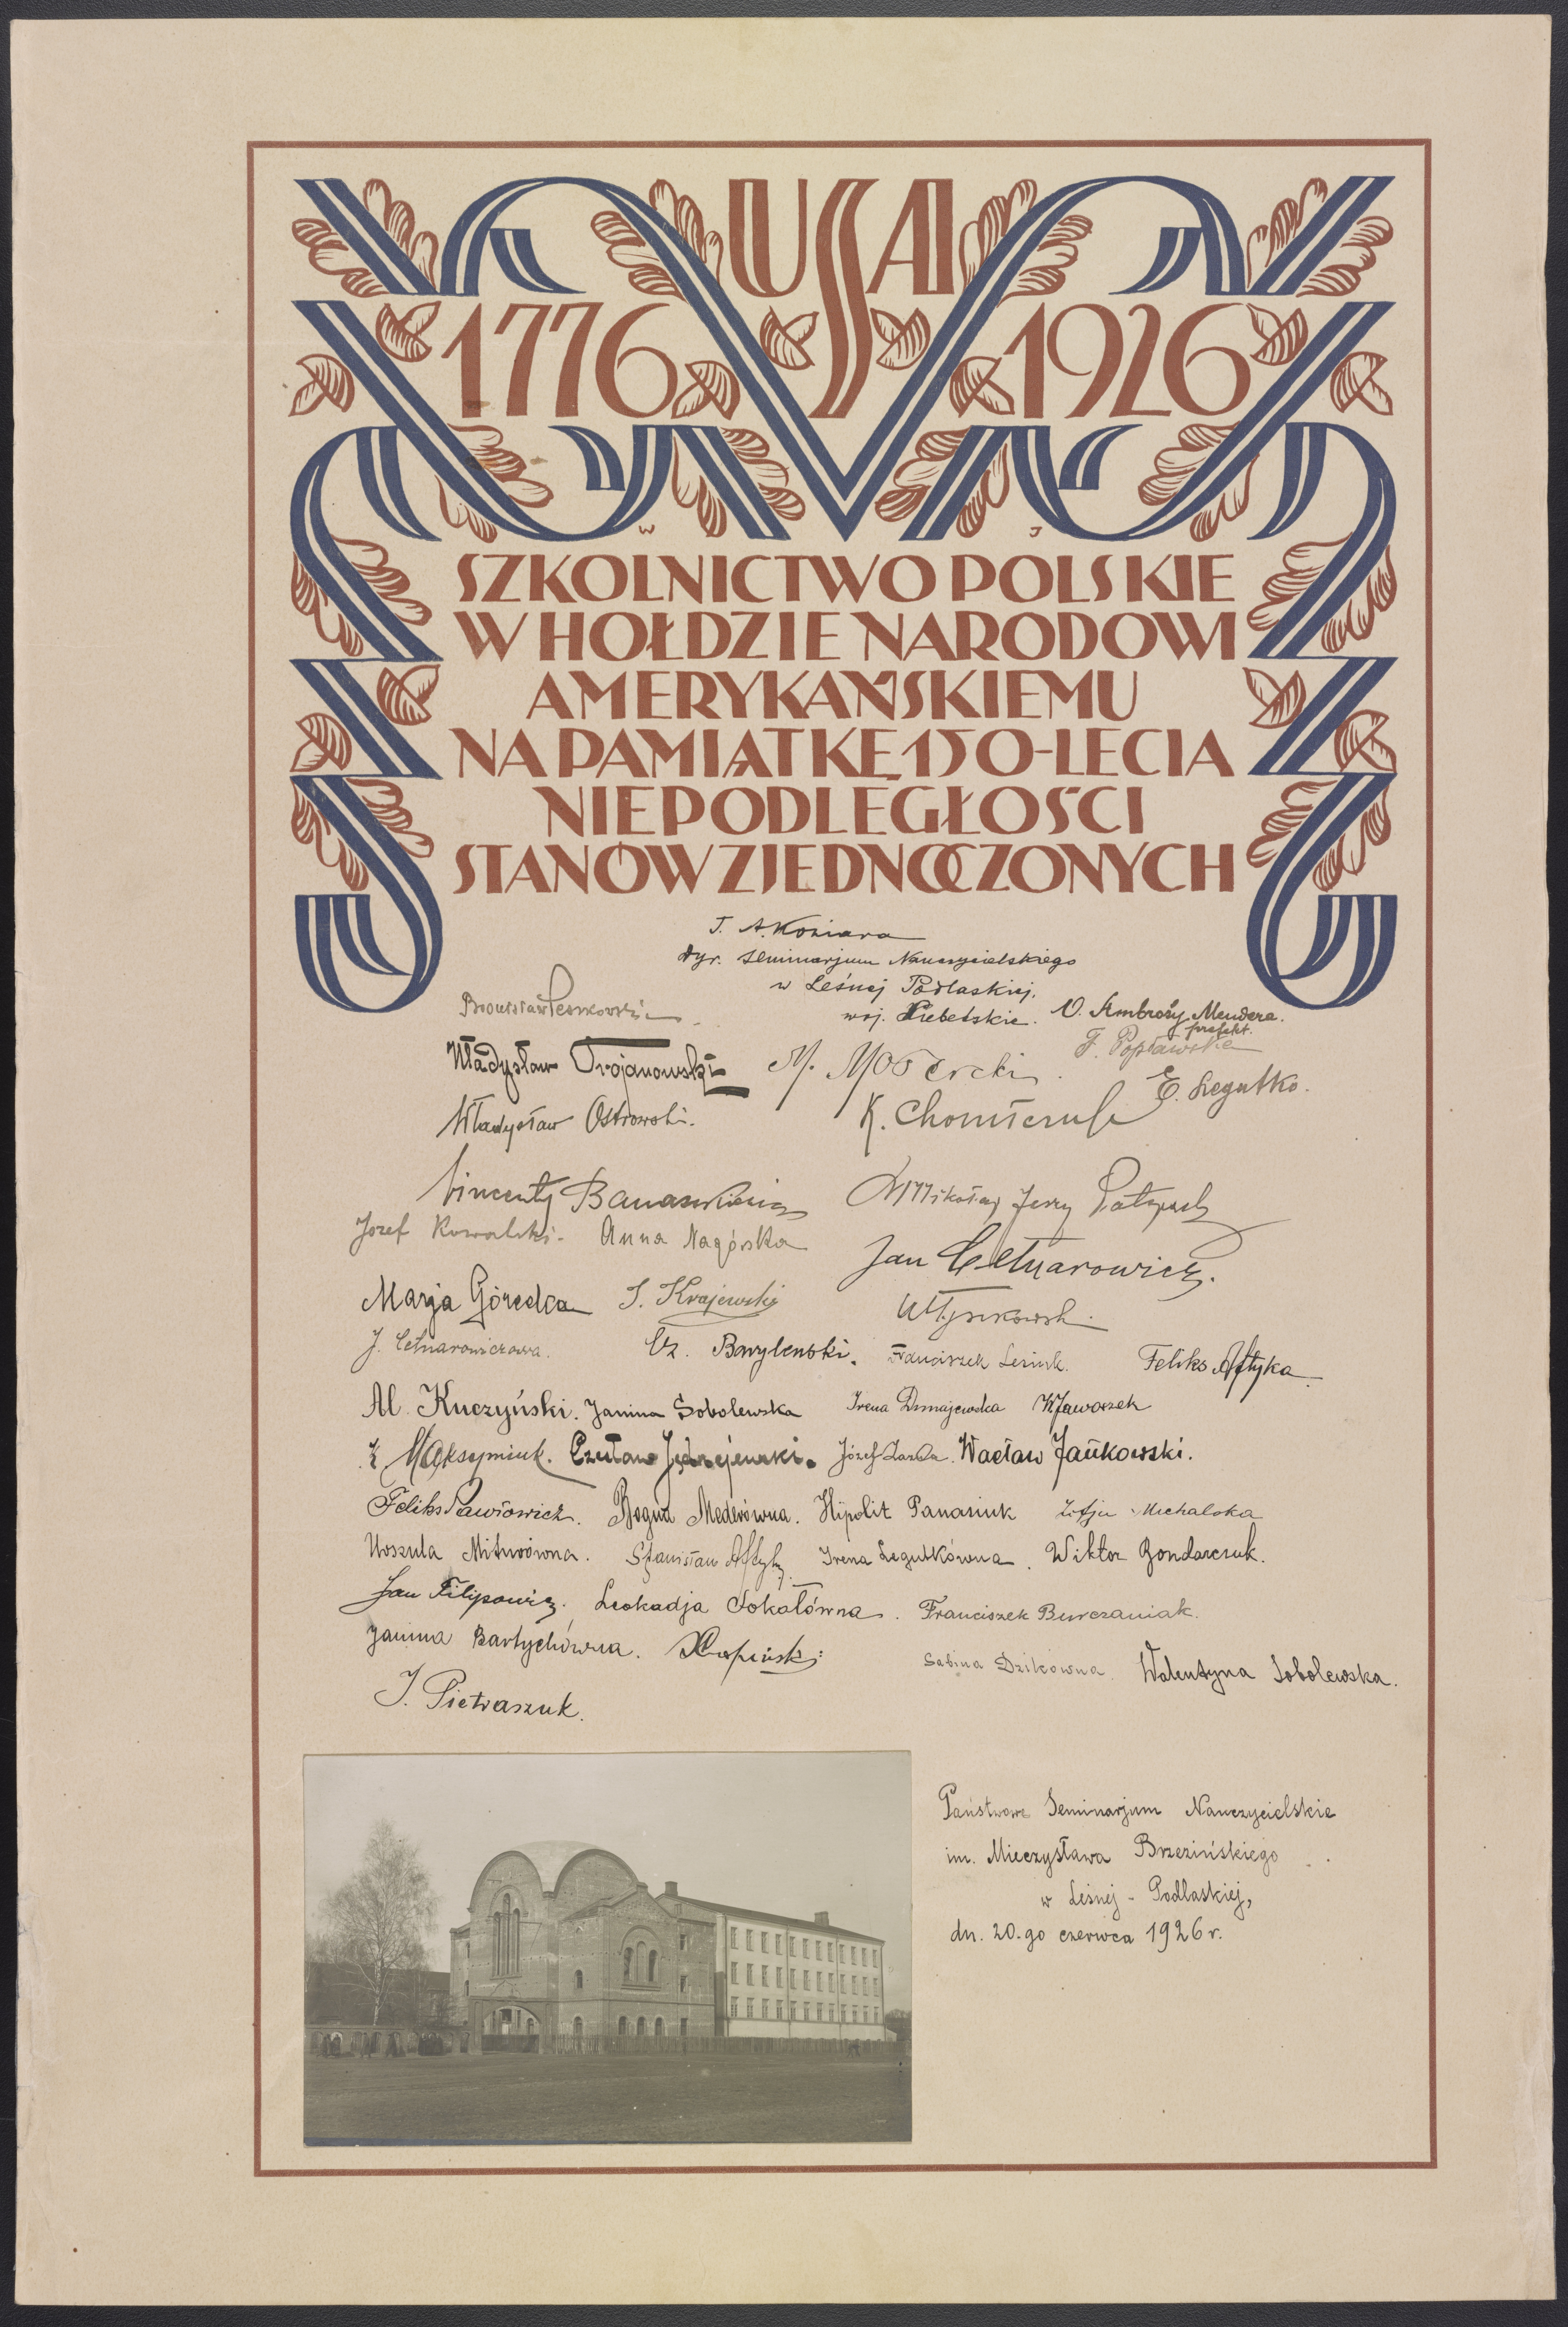 USA
1776 1926
W J
SZKOLNICTWO POLSKIE
W HOŁDZIE NARODOWI
AMERYKAŃSKIEMU
NA PAMIĄTKĘ 150-LECIA
NIEPODLEGŁOŚCI
STANÓW ZJEDNOCZONYCH
J. A. Koziara
dyr. Seminarjum Nauczycielskiego
w Leśnej Podlaskiej.
woj. Lubelskie.
O. Ambroży Mendera.
prefekt.
Bronisław
F. Popławska
Władysław Trojanowski
M.
E. Legutko.
Władysław Ostrowski.
K.
Wincenty Banaszkiewicz
Mikołaj Jerzy
Józef Kowalski. Anna Nagórska
Jan Cetnarowicz.
Marja Górecka S. Krajewski
J. Cetnarowiczowa. Cz. Barylewski. Franciszek Lesiuk. Feliks Aftyka
Al. Kuczyński. Janina Sobolewska Irena Domajewska K. Jaworzek
K. Maksymiuk. Czesław Jędrzejewski. Józef Zarda. Wacław Jańkowski.
Feliks Pawłowicz. Bogna Mederówna. Hipolit Panasiuk Zofja Michalska
Urszula Miturówna. Stanisław Aftyka. Irena Legutkówna. Wiktor Bondarczuk.
Jan Filipowicz. Leokadja Sokałówna. Franciszek Burczaniak.
Janina Bartychówna.
Sabina Dzikówna. Walentyna Sobolewska.
J. Pietraszuk.
Państwowe Seminarjum Nauczycielskie
im. Mieczysława Brzezińskiego
w Leśnej - Podlaskiej,
dn. 20.go czerwca 1926 r.